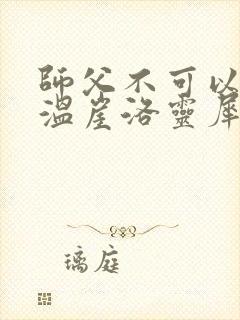 師父不可以
溫崖洛靈犀
璃庭